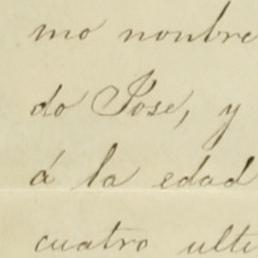 mo nonbre
do Jose, y
á la edad
cuatro ulti